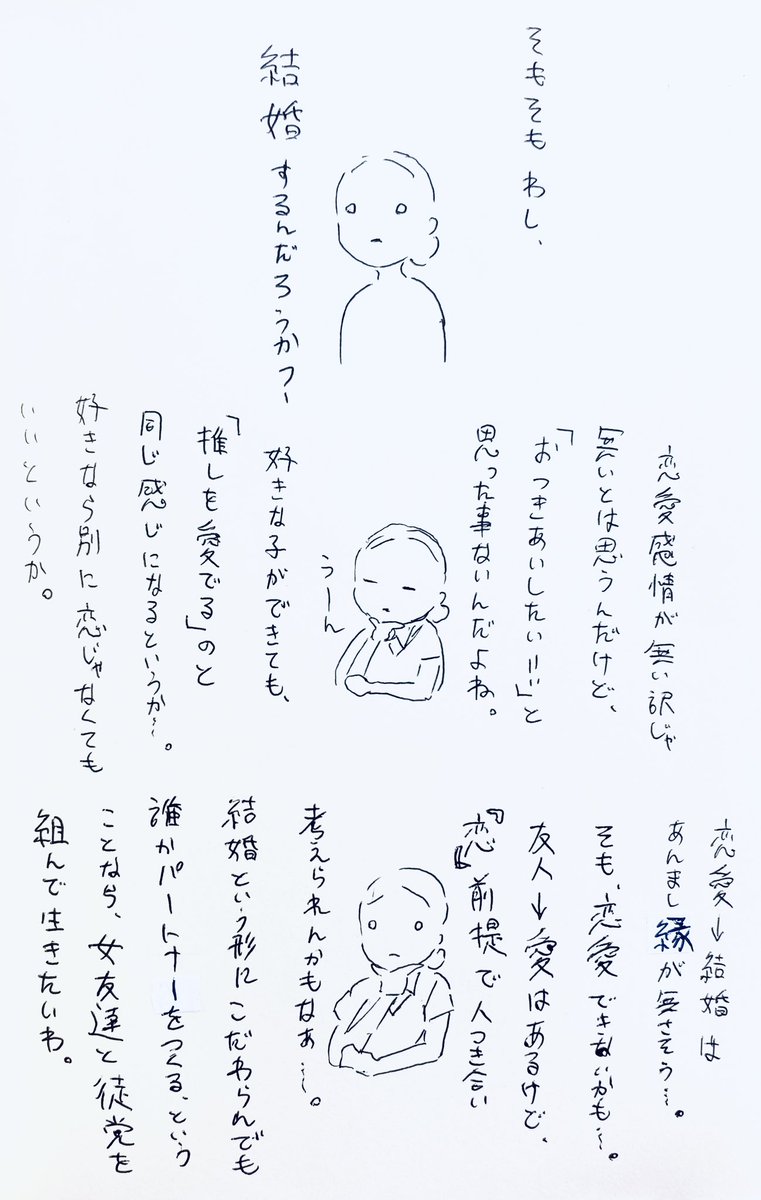 そもそもわし、
結婚するんだろうかフー
恋愛感情が無い訳じゃ
無いとは思うんだけど、
「おつきあいしたい!!」と
思った事ないんだよね。
うーん
好きな子ができても、
「推しを愛でる」のと
同じ感じになるというか…。
好きなら別に恋じゃなくても
いいというか。
恋愛→結婚は
あんまし縁が無さそう…。
そも、恋愛できないかも…。
友人→愛はあるけど、
『恋』前提で人つき合い
考えられんかもなぁ…。
結婚という形にこだわらんでも
誰かパートナーをつくる、という
ことなら、女友達と徒党を
組んで生きたいわ。